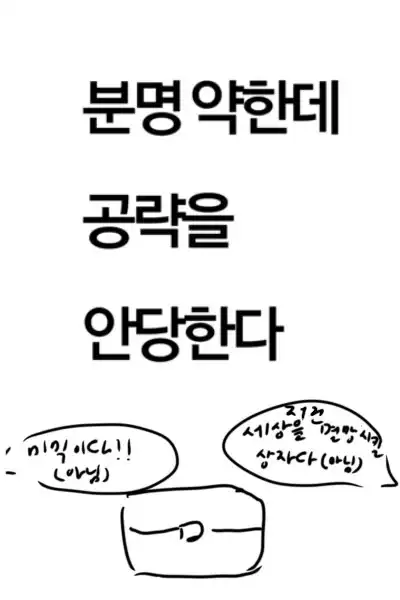 분명 약한데
공략을
안당한다
미믹이다!!
(아님)
저건
세상을 멸망시킬
상자다(아님)